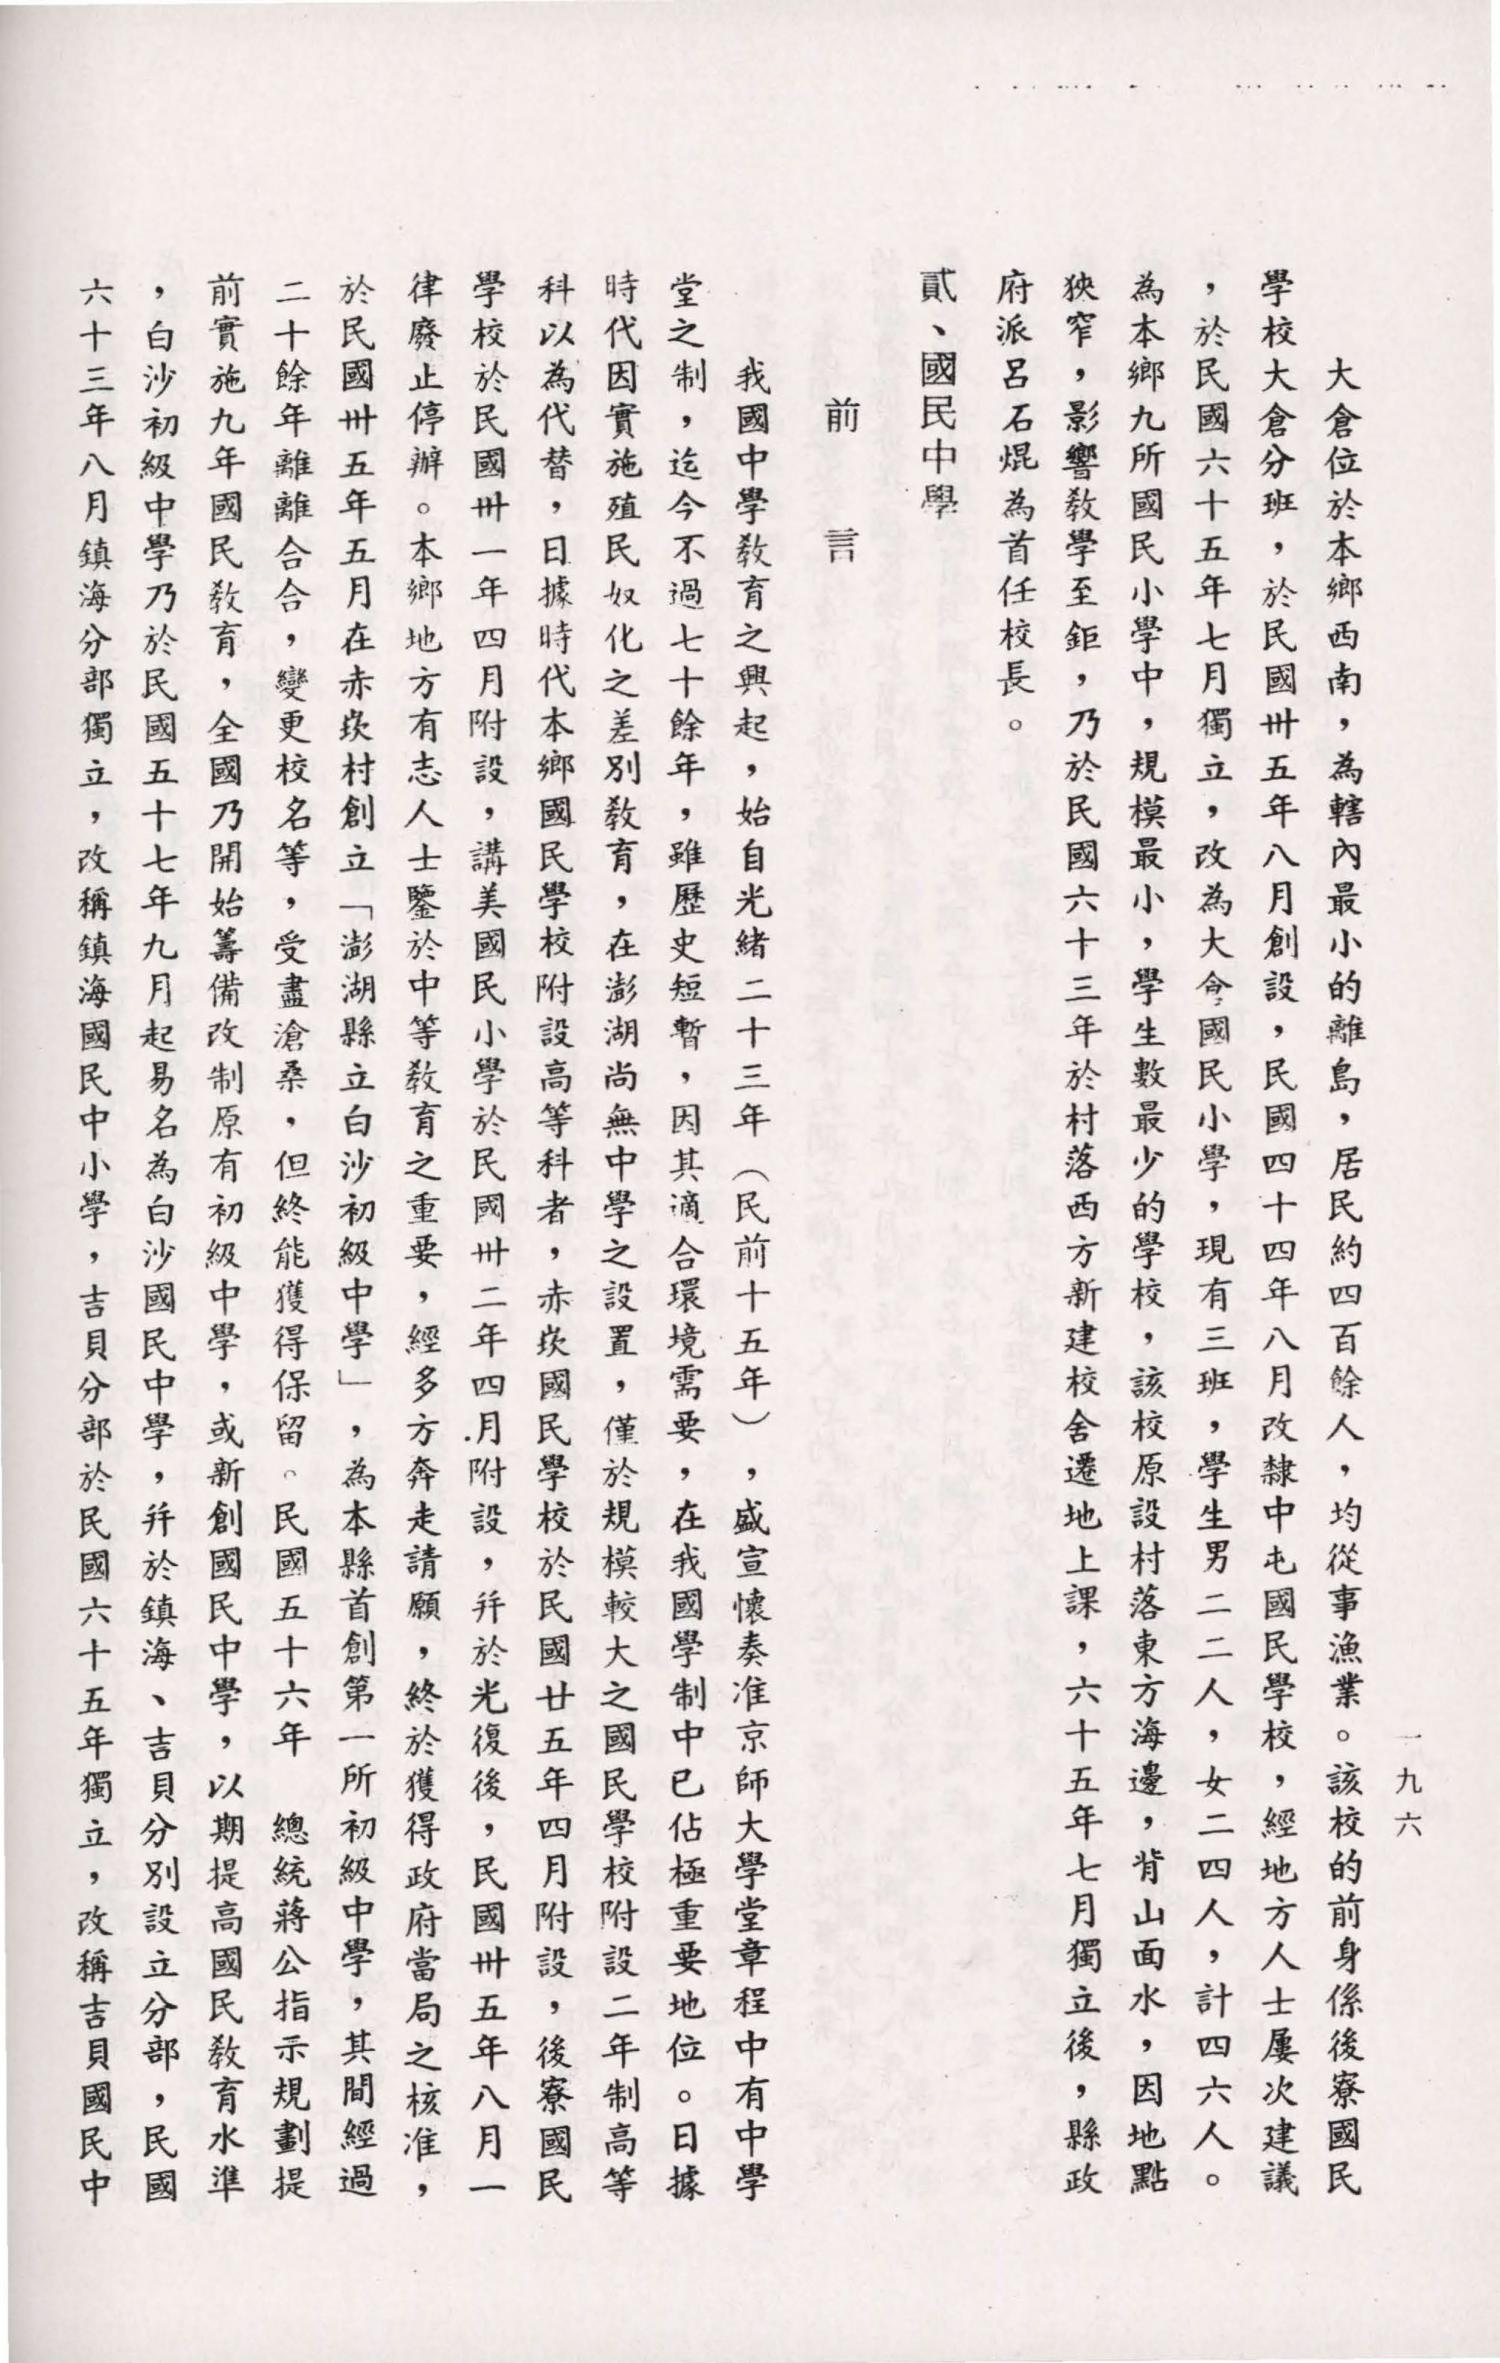 一九六
大倉位於本鄉西南，為轄內最小的離島，居民約四百餘人，均從事漁業。該校的前身係後寮國民
學校大倉分班，於民國卅五年八月創設，民國四十四年八月改隸中屯國民學校，經地方人士屢次建議
，於民國六十五年七月獨立，改為大倉國民小學，現有三班，學生男二二人，女二四人，計四六人。
為本鄉九所國民小學中，規模最小，學生數最少的學校，該校原設村落東方海邊，背山面水，因地點
狹窄，影響教學至鉅，乃於民國六十三年於村落西方新建校舍遷地上課，六十五年七月獨立後，縣政
府派呂石焜為首任校長。
貳、國民中學
前言
我國中學教育之興起，始自光緒二十三年（民前十五年），盛宣懷奏准京師大學堂章程中有中學
堂之制，迄今不過七十餘年，雖歷史短暫，因其適合環境需要，在我國學制中已佔極重要地位。日據
時代因實施殖民奴化之差別教育，在澎湖尚無中學之設置，僅於規模較大之國民學校附設二年制高等
科以為代替，日據時代本鄉國民學校附設高等科者，赤崁國民學校於民國廿五年四月附設，後寮國民
學校於民國卅一年四月附設，講美國民小學於民國卅二年四月附設，并於光復後，民國卅五年八月一
律廢止停辦。本鄉地方有志人士鑒於中等教育之重要，經多方奔走請願，終於獲得政府當局之核准，
於民國卅五年五月在赤崁村創立「澎湖縣立白沙初級中學」，為本縣首創第一所初級中學，其間經過
二十餘年離離合合，變更校名等，受盡滄桑，但終能獲得保留。民國五十六年　總統蔣公指示規劃提
前實施九年國民教育，全國乃開始籌備改制原有初級中學，或新創國民中學，以期提高國民教育水準
，白沙初級中學乃於民國五十七年九月起易名為白沙國民中學，并於鎮海、吉貝分別設立分部，民國
六十三年八月鎮海分部獨立，改稱鎮海國民中小學，吉貝分部於民國六十五年獨立，改稱吉貝國民中